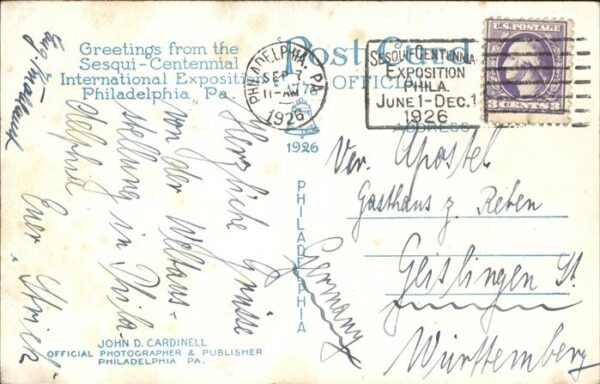 Greetings from the
Sesqui-Centennial
International Exposition
Philadelphia, Pa.
Post Card
OFFICIAL
ADDRESS
1776
1926
PHILADELPHIA
PHILADELPHIA, PA.
SEP 7
11-AM
1926
SESQUI-CENTENNIAL
EXPOSITION
PHILA.
JUNE 1-DEC. 1
1926
U.S. POSTAGE
3 CENTS 3
Herzliche Grüsse
von der Weltaus-
stellung in Phila-
delphia
Euer
Ver. Apostel
Gasthaus z. Reben
Geislingen St.
Württemberg
Germany
JOHN D. CARDINELL
OFFICIAL PHOTOGRAPHER & PUBLISHER
PHILADELPHIA PA.